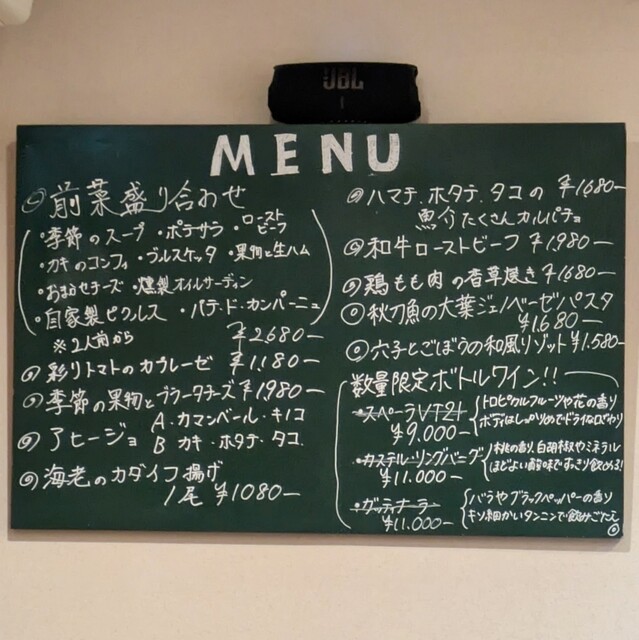 JBL
MENU
前菜盛り合わせ
・季節のスープ ・ポテサラ ・ローストビーフ
・カキのコンフィ ・ブルスケッタ ・果物と生ハム
・おまかせチーズ ・燻製オイルサーディン
・自家製ピクルス ・パテ・ド・カンパーニュ
※2人前から ¥2680-
彩りトマトのカプレーゼ ¥1,180-
季節の果物とブラータチーズ ¥1,980-
アヒージョ A.カマンベール・キノコ
B カキ・ホタテ・タコ
海老のカダイフ揚げ
1尾 ¥1080-
ハマチ、ホタテ、タコの ¥1,680-
魚介たくさんカルパチョ
和牛ローストビーフ ¥1,980-
鶏もも肉の香草焼き ¥1,680-
秋刀魚の大葉ジェノベーゼパスタ
¥1,680-
穴子とごぼうの和風リゾット ¥1,580-
数量限定ボトルワイン!!
・スペーラVT21
¥9.000-
トロピカルフルーツや花の香り
ボディはしっかりめでドライな口当り
・カステル・リングバーグ
¥11.000-
桃の香り、白胡椒やミネラル
ほどよい酸味ですっきり飲める!
・ガッティナーラ
¥11.000-
バラやブラックペッパーの香り
キメ細かいタンニンで飲みごたえ◎